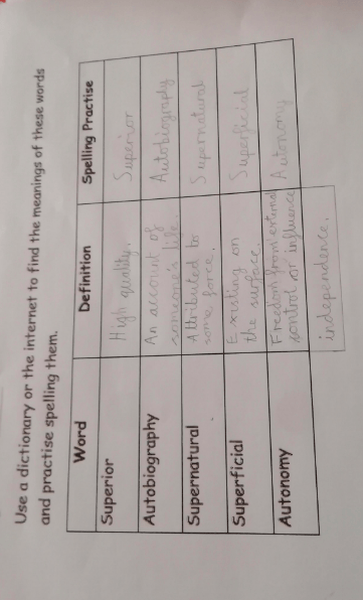 Use a dictionary or the internet to find the meanings of these words
and practise spelling them.
Word Definition Spelling Practise
Superior High quality. Superior
Autobiography An account of
someone's life. Autobiography
Supernatural Attributed to
some force. Supernatural
Superficial Existing on
the surface. Superficial
Autonomy Freedom from external
control or influence Autonomy
independence.